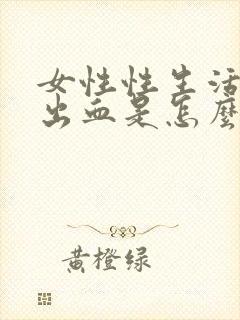 女性性生活
出血是怎麼
黄橙绿